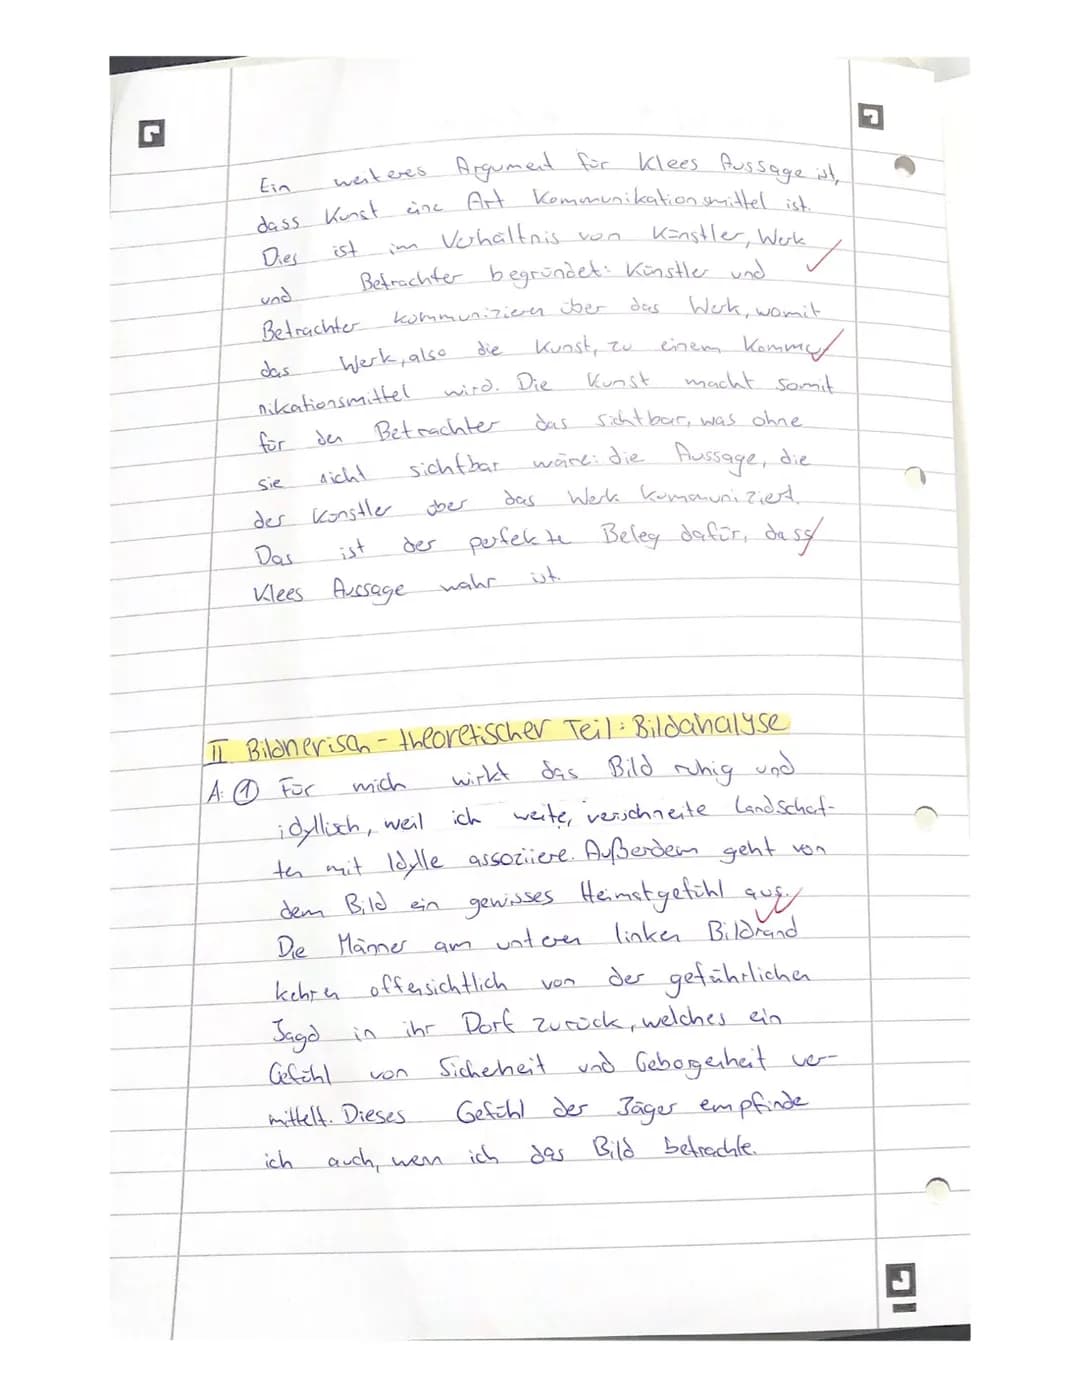 Ein weiteres Argument für Klees Aussage ist,
dass Kunst eine Art Kommunikationsmittel ist.
Dies ist im Verhältnis von Künstler, Werk
und Betrachter begründet: Künstler und
Betrachter kommunizieren über das Werk, womit
das Werk, also die Kunst, zu einem Kommu
nikationsmittel wird. Die Kunst macht somit
für den Betrachter das sichtbar, was ohne
sie nicht sichtbar wäre: die Aussage, die
der Künstler über das Werk kommuniziert.
Das ist der perfekte Beleg dafür, dass
Klees Aussage wahr ist.
II Bildnerisch-theoretischer Teil: Bildanalyse
A: ① Für mich wirkt das Bild ruhig und
idyllisch, weil ich weite, verschneite Landschaf-
ten mit Idylle assoziiere. Außerdem geht von
dem Bild ein gewisses Heimatgefühl aus.
Die Männer am unteren linken Bildrand
kehren offensichtlich von der gefährlichen
Jagd in ihr Dorf zurück, welches ein
Gefühl von Sicherheit und Geborgenheit ver-
mittelt. Dieses Gefühl der Jäger empfinde
ich auch, wenn ich das Bild betrachte.